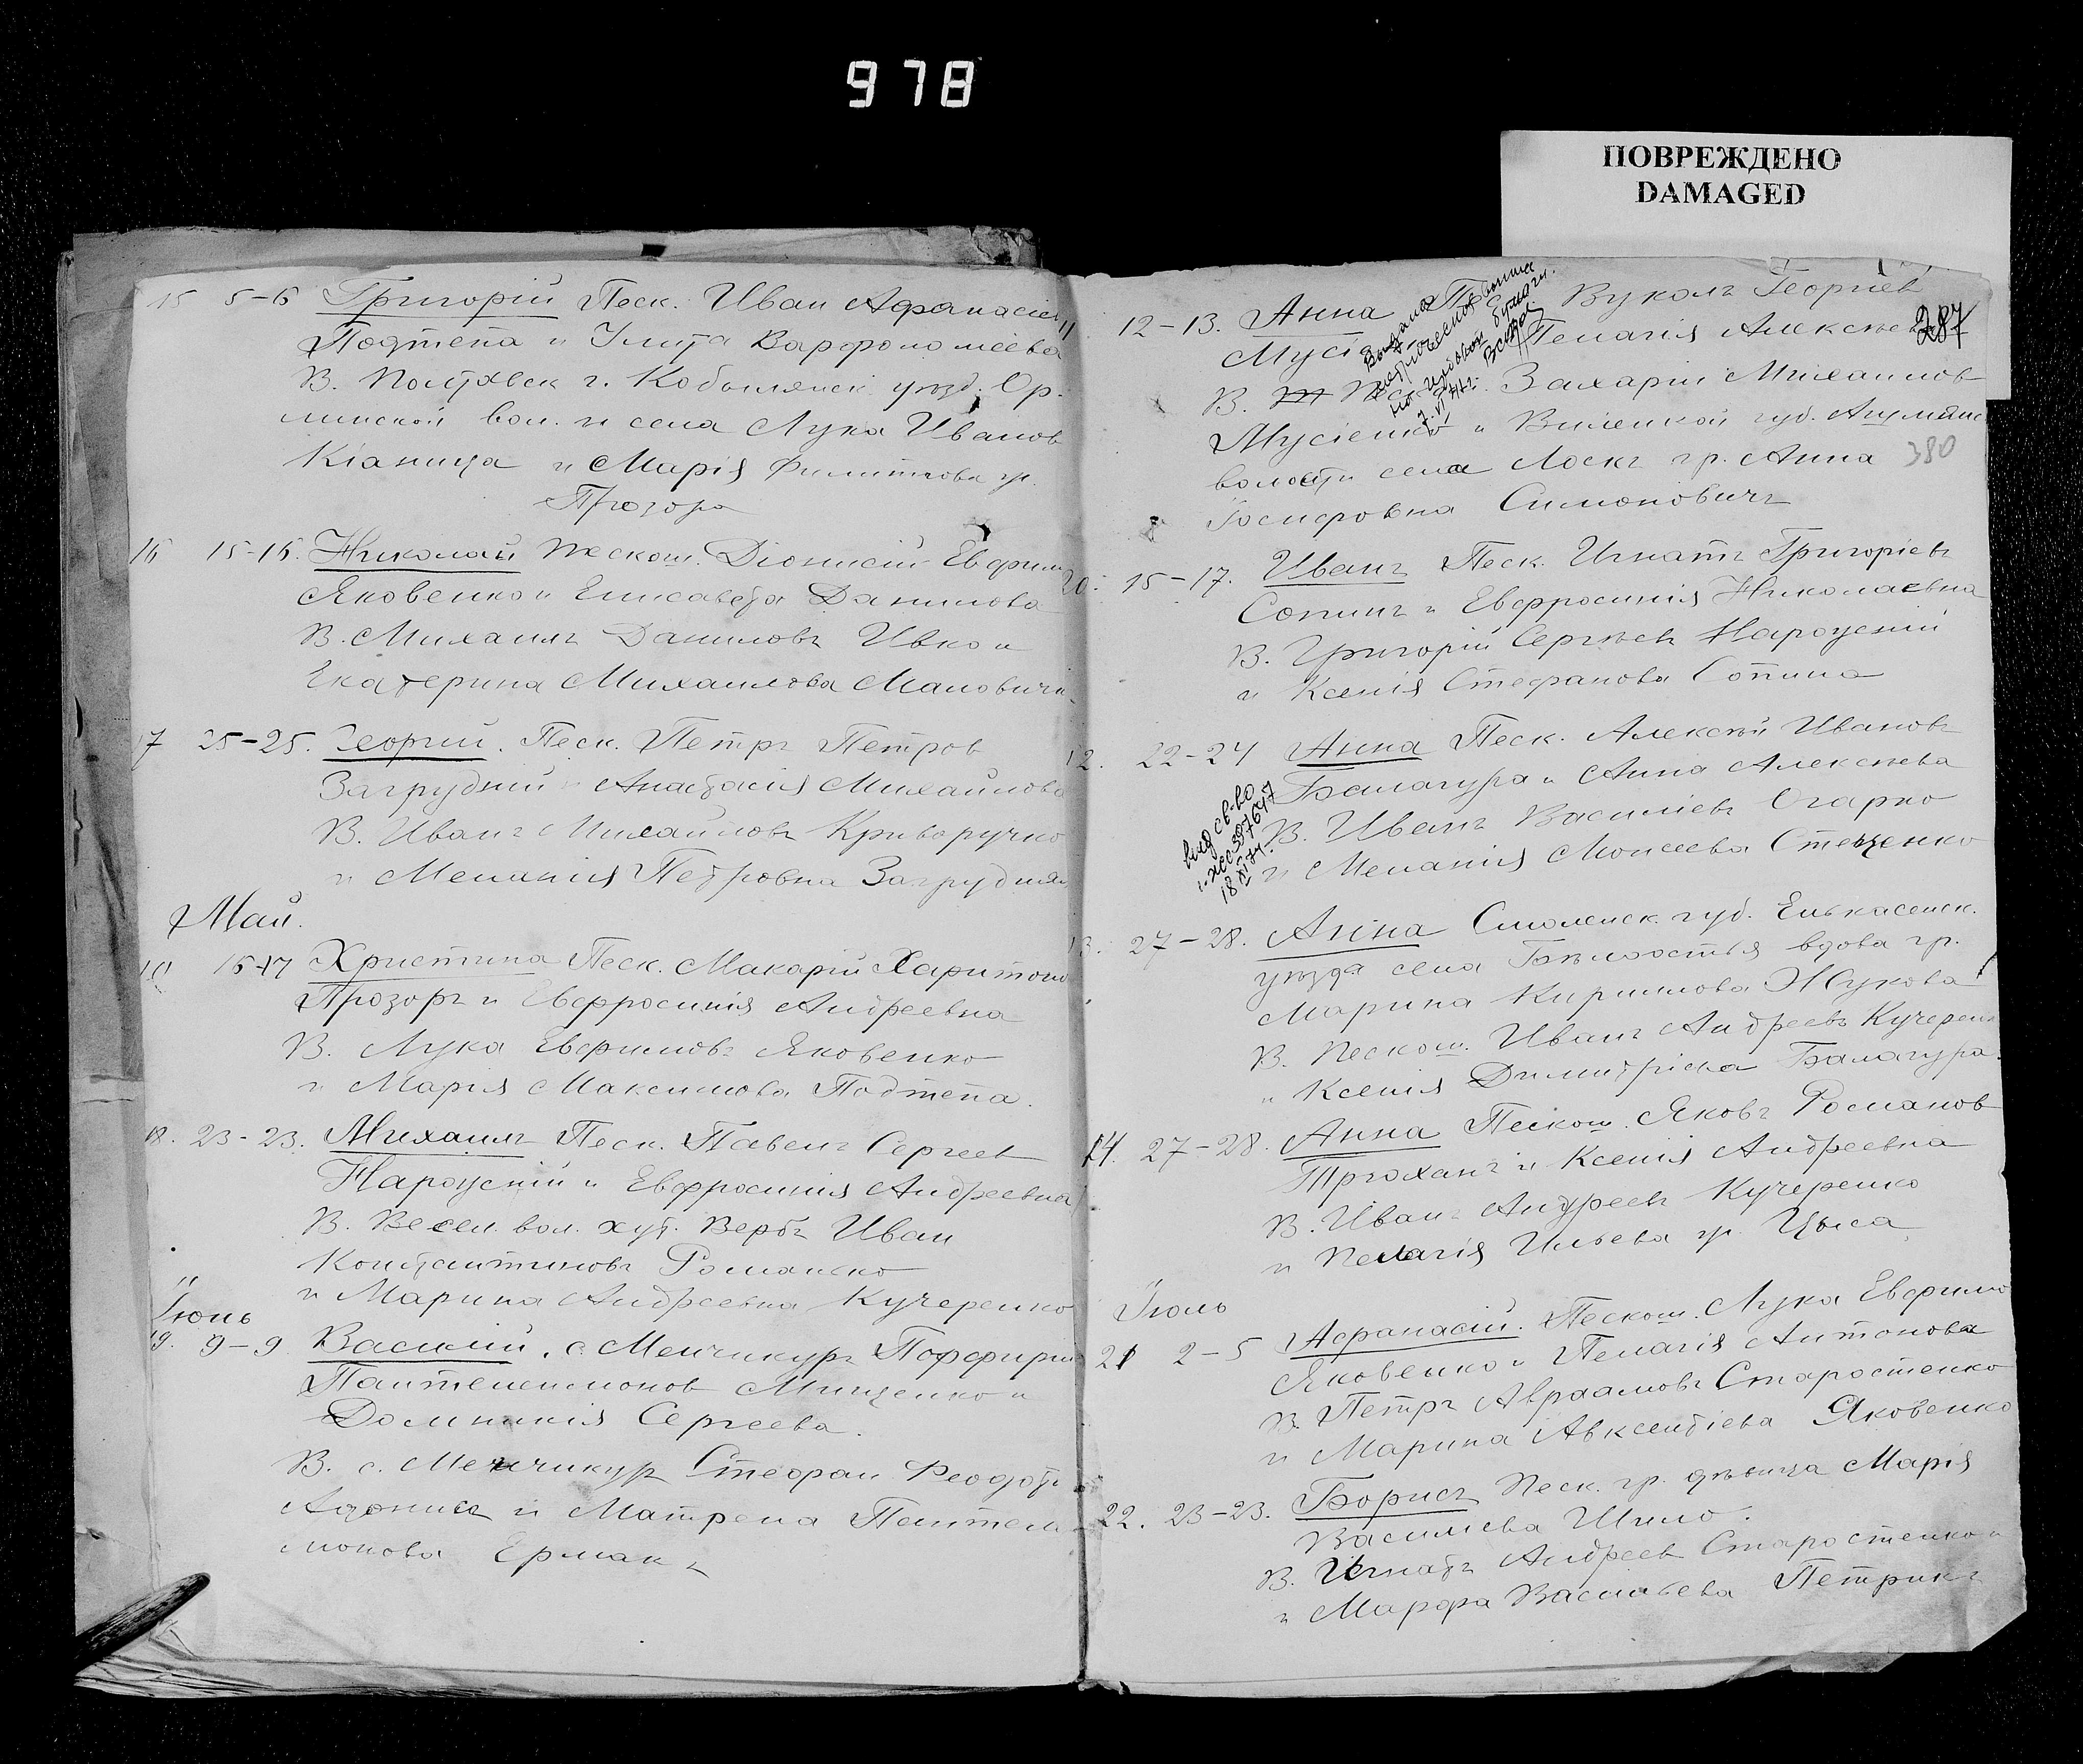 978
ПОВРЕЖДЕНО
DAMAGED
15 5-6 Григорій Песк. Иван Афанасіев
Подтепа и Улита Варфоломеева
В. Полтавск г. Кобылянск уезд. Ор-
лин­ской вол. и села Лука Иванов
Кіаница и Марія Филиппова гр.
Прозора
16 15-16. Николай Пескош. Діонисій Евфим
Яковенко и Елисавета Данилова
В. Михаилъ Даниловъ Ивко и
Екатерина Михаилова Мановичъ
17 25-25. Георгій. Песк. Петръ Петров
Загрудний Анастасія Михайлова
В. Иванъ Михайловъ Криворучко
и Меланія Петровна Загрудняя
Май.
10 16-17 Христина Песк. Макарій Харитонов
Прозоръ и Евфросинія Андреевна
В. Лука Евфимовъ Яковенко
и Марія Максимова Подтепа.
18. 23-23. Михаилъ Песк. Павелъ Сергеев
Нароцскій и Евфросинія Андреевна
В. Весел. вол. хут. Вербъ Иван
Константиновъ Романько
и Марина Андреевна Кучеренко
Іюнь
19. 9-9 Василій. с. Менчикуръ Порфирий
Пантелеимонов Мищенко и
Домникія Сергеева.
В. с. Менчикур Стефан Феодот
Адонис и Матрена Пантели
монова Ермакъ
287
11 12-13. Анна Вуколъ Георгіев
Пелагія Алексеева
В. Песк. Захарій Михаилов
Мусіенко и Виленской губ. Ашмянс
волости села Лоскъ гр. Анна
Іосифовна Симоновичъ
380
20. 15-17. Иванъ Песк. Игнатъ Григоріевъ
Сопинъ и Евфросинія Николаевна
В. Григорій Сергеевъ Нароцскій
и Ксенія Стефанова Сопина
12. 22-24 Анна Песк. Алексей Ивановъ
Балагура и Анна Алексеева
В. Иванъ Василіевъ Огарко
и Меланія Моисеева Стеценко
выд св-во
18 XI 74.
13. 27-28. Анна Смоленск. губ. Елькасенск.
уезда села вдова гр.
Марина Кириллова Жукова
В. Пескош. Иванъ Андреевъ Кучерен
и Ксенія Димитріева Балагура.
14. 27-28. Анна Пескош. Яковъ Романов
Трюханъ и Ксенія Андреевна
В. Иванъ Андреевъ Кучеренко
и Пелагія Ильева гр. Цыса
Іюль
21 2-5 Афанасій. Пескош. Лука Евфимо
Яковенко и Пелагія Антонова
В. Петръ Авраамовъ Старостенко
и Марина Авксентіева Яковенко
22. 23-23. Борисъ Песк. гр. девица Марія
Василіева Шило.
В. Игнатъ Андреев Старостенко и
и Марфа Васильева Петрикъ